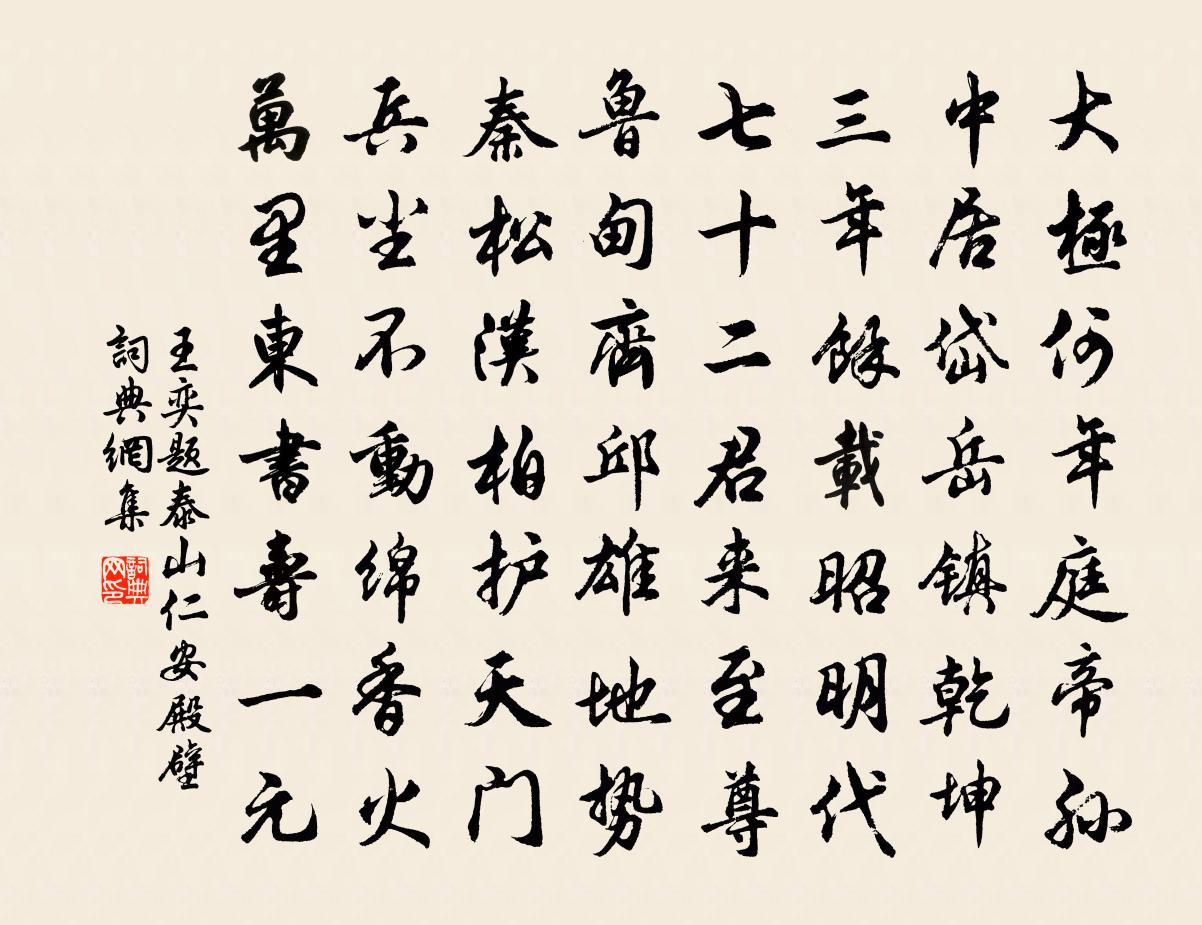 大極何年庭帝孙
中居岱岳镇乾坤
三年餘載昭明代
七十二君来至尊
魯甸齊邱雄地势
秦松漢柏护天门
兵尘不動绵香火
萬里東書壽一元
王奕题泰山仁安殿壁
詞典網集
詞典网印